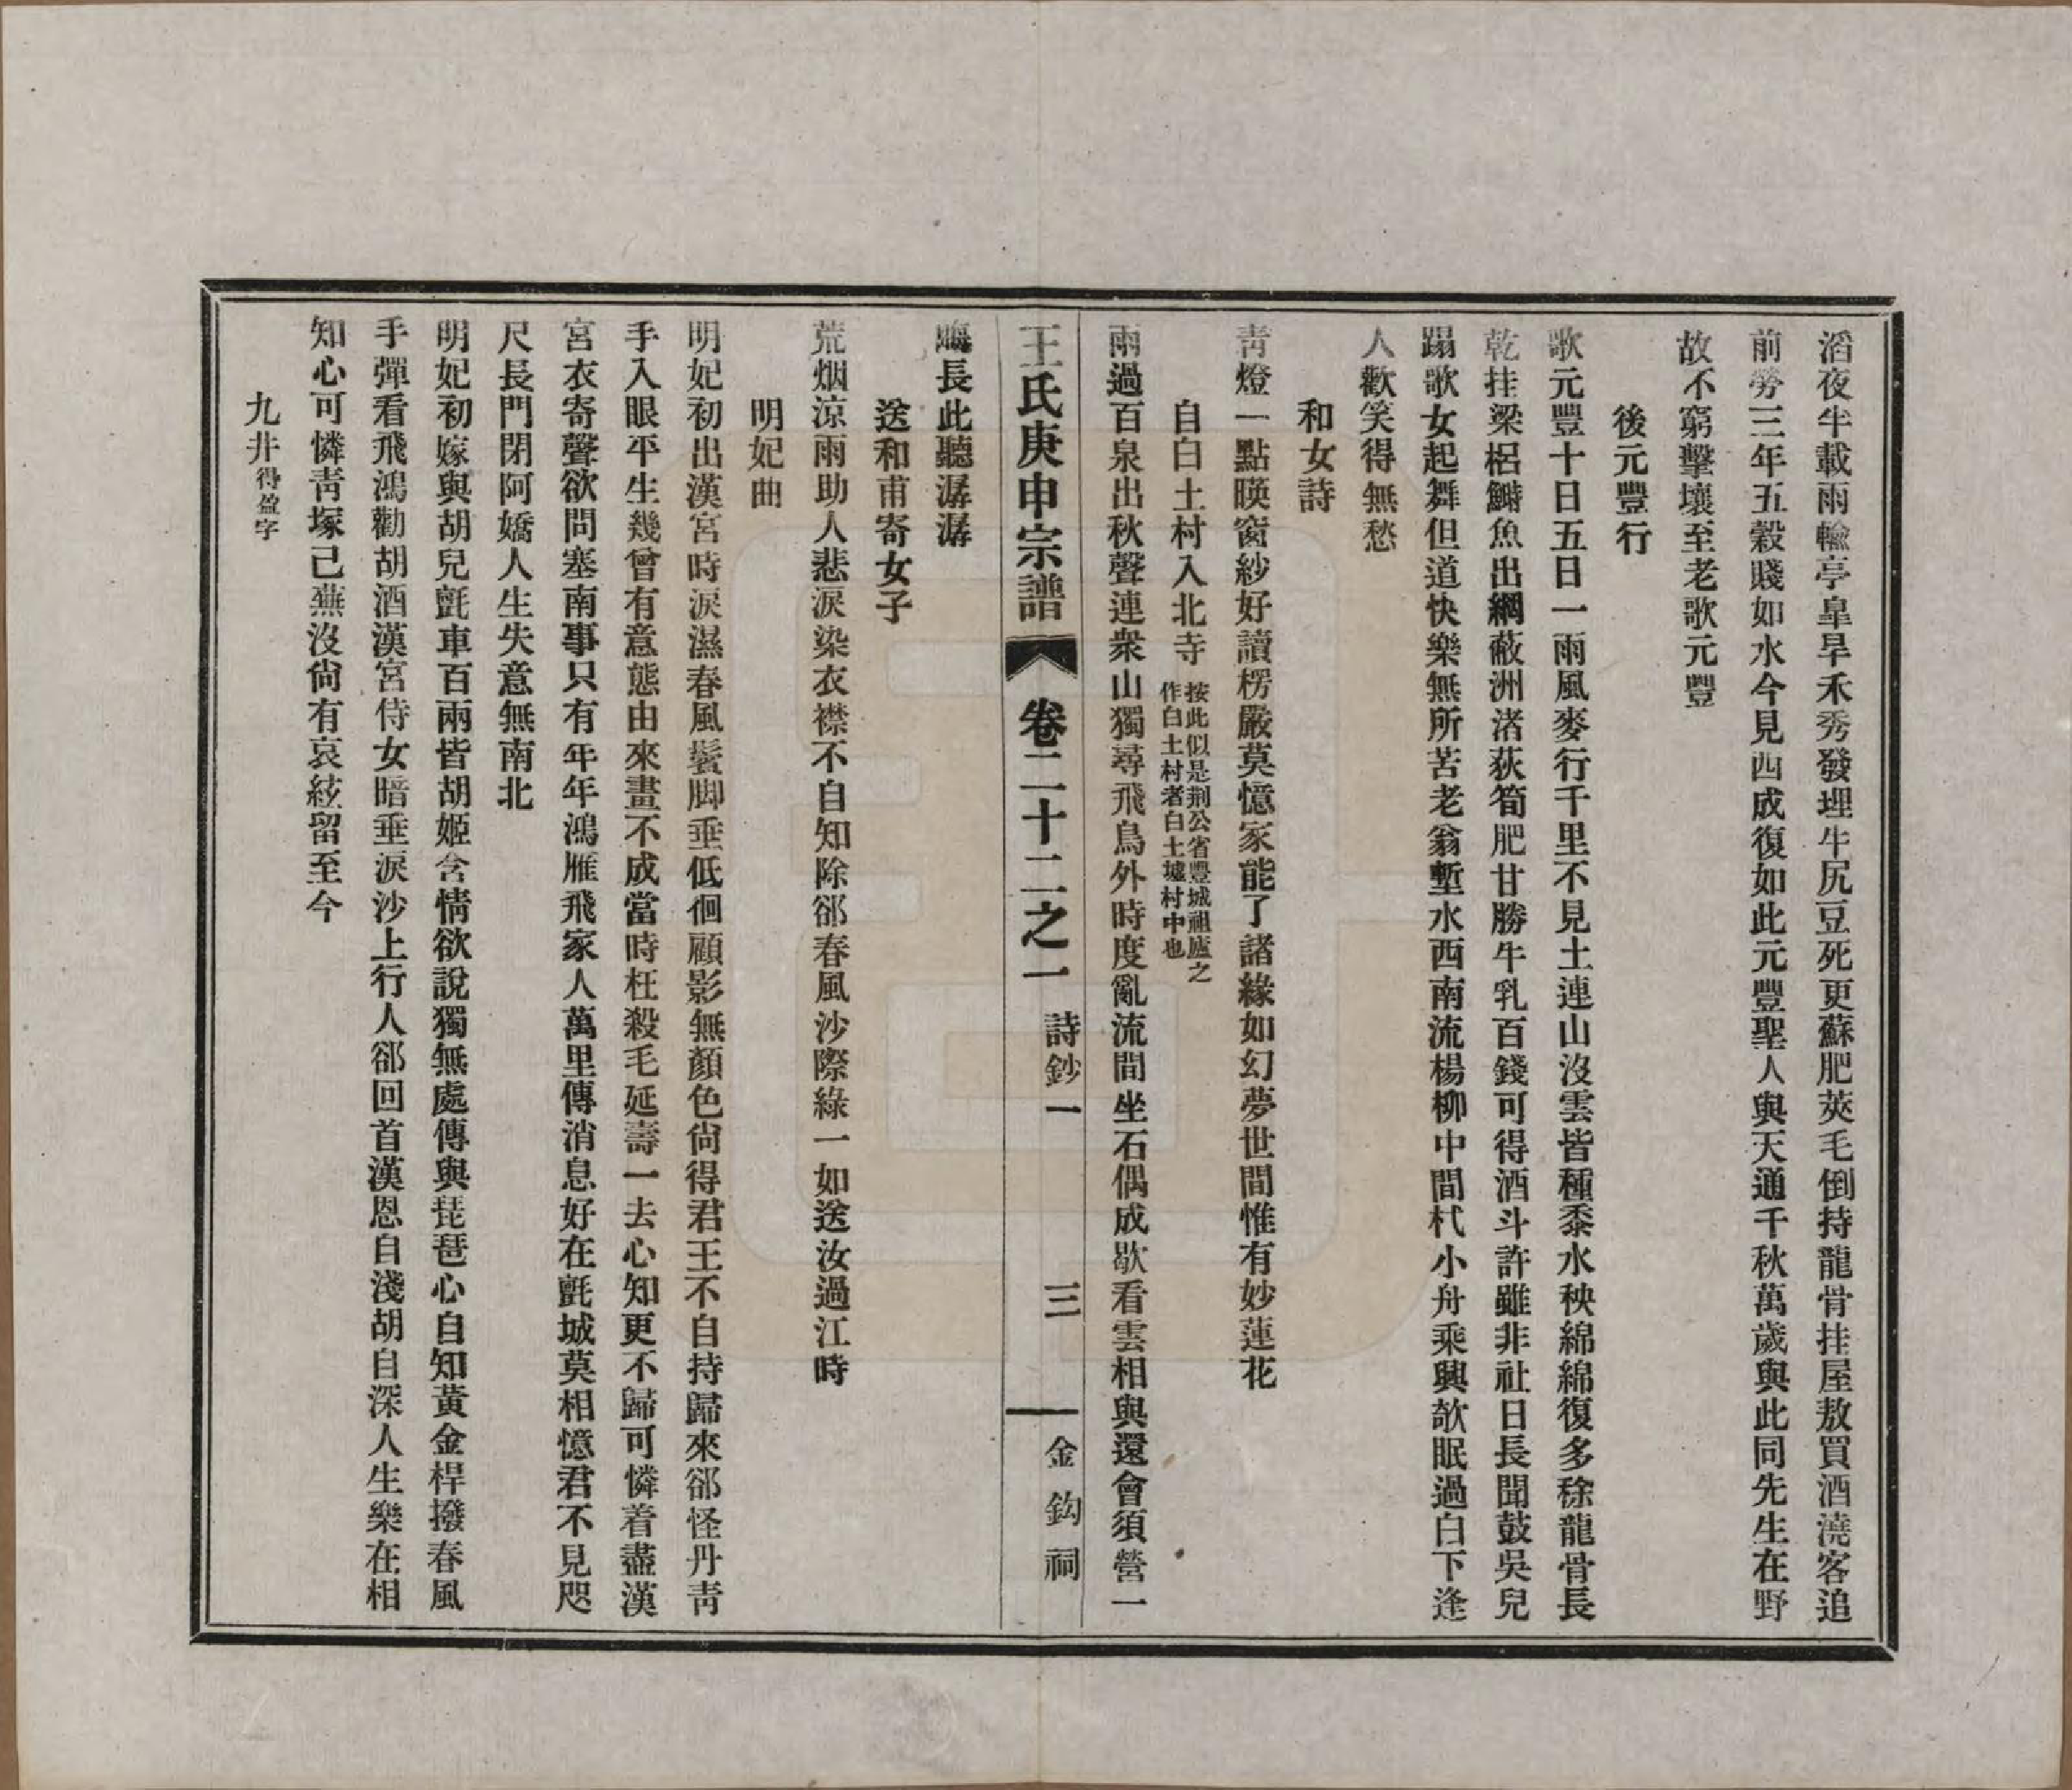 滔夜半載雨輸亭皐旱禾秀發埋牛尻豆死更蘇肥莢毛倒持龍骨挂屋敖買酒澆客追
前勞三年五穀賤如水今見西成復如此元豐聖人與天通千秋萬歲與此同先生在野
故不窮擊壤至老歌元豐
後元豐行
歌元豐十日五日一雨風麥行千里不見土連山沒雲皆種黍水秧綿綿復多稌龍骨長
乾挂梁梠鰣魚出網蔽洲渚荻筍肥甘勝牛乳百錢可得酒斗許雖非社日長聞鼓吳兒
蹋歌女起舞但道快樂無所苦老翁塹水西南流楊柳中間杙小舟乘興欹眠過白下逢
人歡笑得無愁
和女詩
靑燈一點暎窗紗好讀楞嚴莫憶家能了諸緣如幻夢世間惟有妙蓮花
自白土村入北寺 按此似是荆公省豐城祖廬之
作白土村者白土墟村中也
雨過百泉出秋聲連衆山獨尋飛鳥外時度亂流間坐石偶成歇看雲相與還會須營一
王氏庚申宗譜 卷二十二之一 詩鈔一 三 金鈎祠
畮長此聽潺潺
送和甫寄女子
荒烟涼雨助人悲淚染衣襟不自知除郤春風沙際綠一如送汝過江時
明妃曲
明妃初出漢宮時淚濕春風鬢脚垂低徊顧影無顏色尙得君王不自持歸來郤怪丹靑
手入眼平生幾曾有意態由來畫不成當時枉殺毛延壽一去心知更不歸可憐着盡漢
宮衣寄聲欲問塞南事只有年年鴻雁飛家人萬里傳消息好在氈城莫相憶君不見咫
尺長門閉阿嬌人生失意無南北
明妃初嫁與胡兒氈車百兩皆胡姬含情欲說獨無處傳與琵琶心自知黃金桿撥春風
手彈看飛鴻勸胡酒漢宮侍女暗垂淚沙上行人郤回首漢恩自淺胡自深人生樂在相
知心可憐靑塚已蕪沒尙有哀絃留至今
九井得盈字